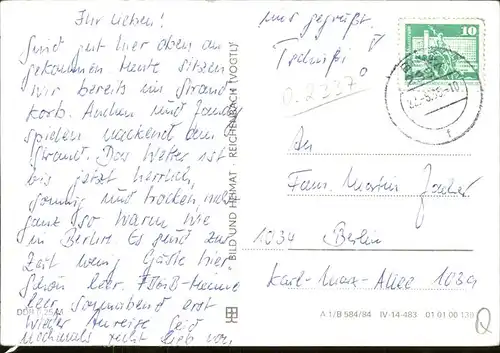 Ihr lieben!
Sind gut hier oben an
gekommen. Heute sitzen
wir bereits im Strand
korb. Anchen und
spielen nackend am
Strand. Das Wetter ist
bis jetzt herrlich,
sonnig und trocken, nicht
ganz so warm wie
in Berlin. Es sind zur
Zeit wenig Gäste hier.
Schön leer. FDGB-Heime
leer Sonnabend erst
wieder Anreise. Seid
nochmals recht lieb von
uns gegrüßt
Tschüßi
0.2327
BILD UND HEIMAT REICHENBACH (VOGTL)
10
An
Fam. Martin
1034 Berlin
Karl-Marx-Allee 103a
DDR 0,25 M
A 1/B 584/84 IV-14-483 01 01 00 138